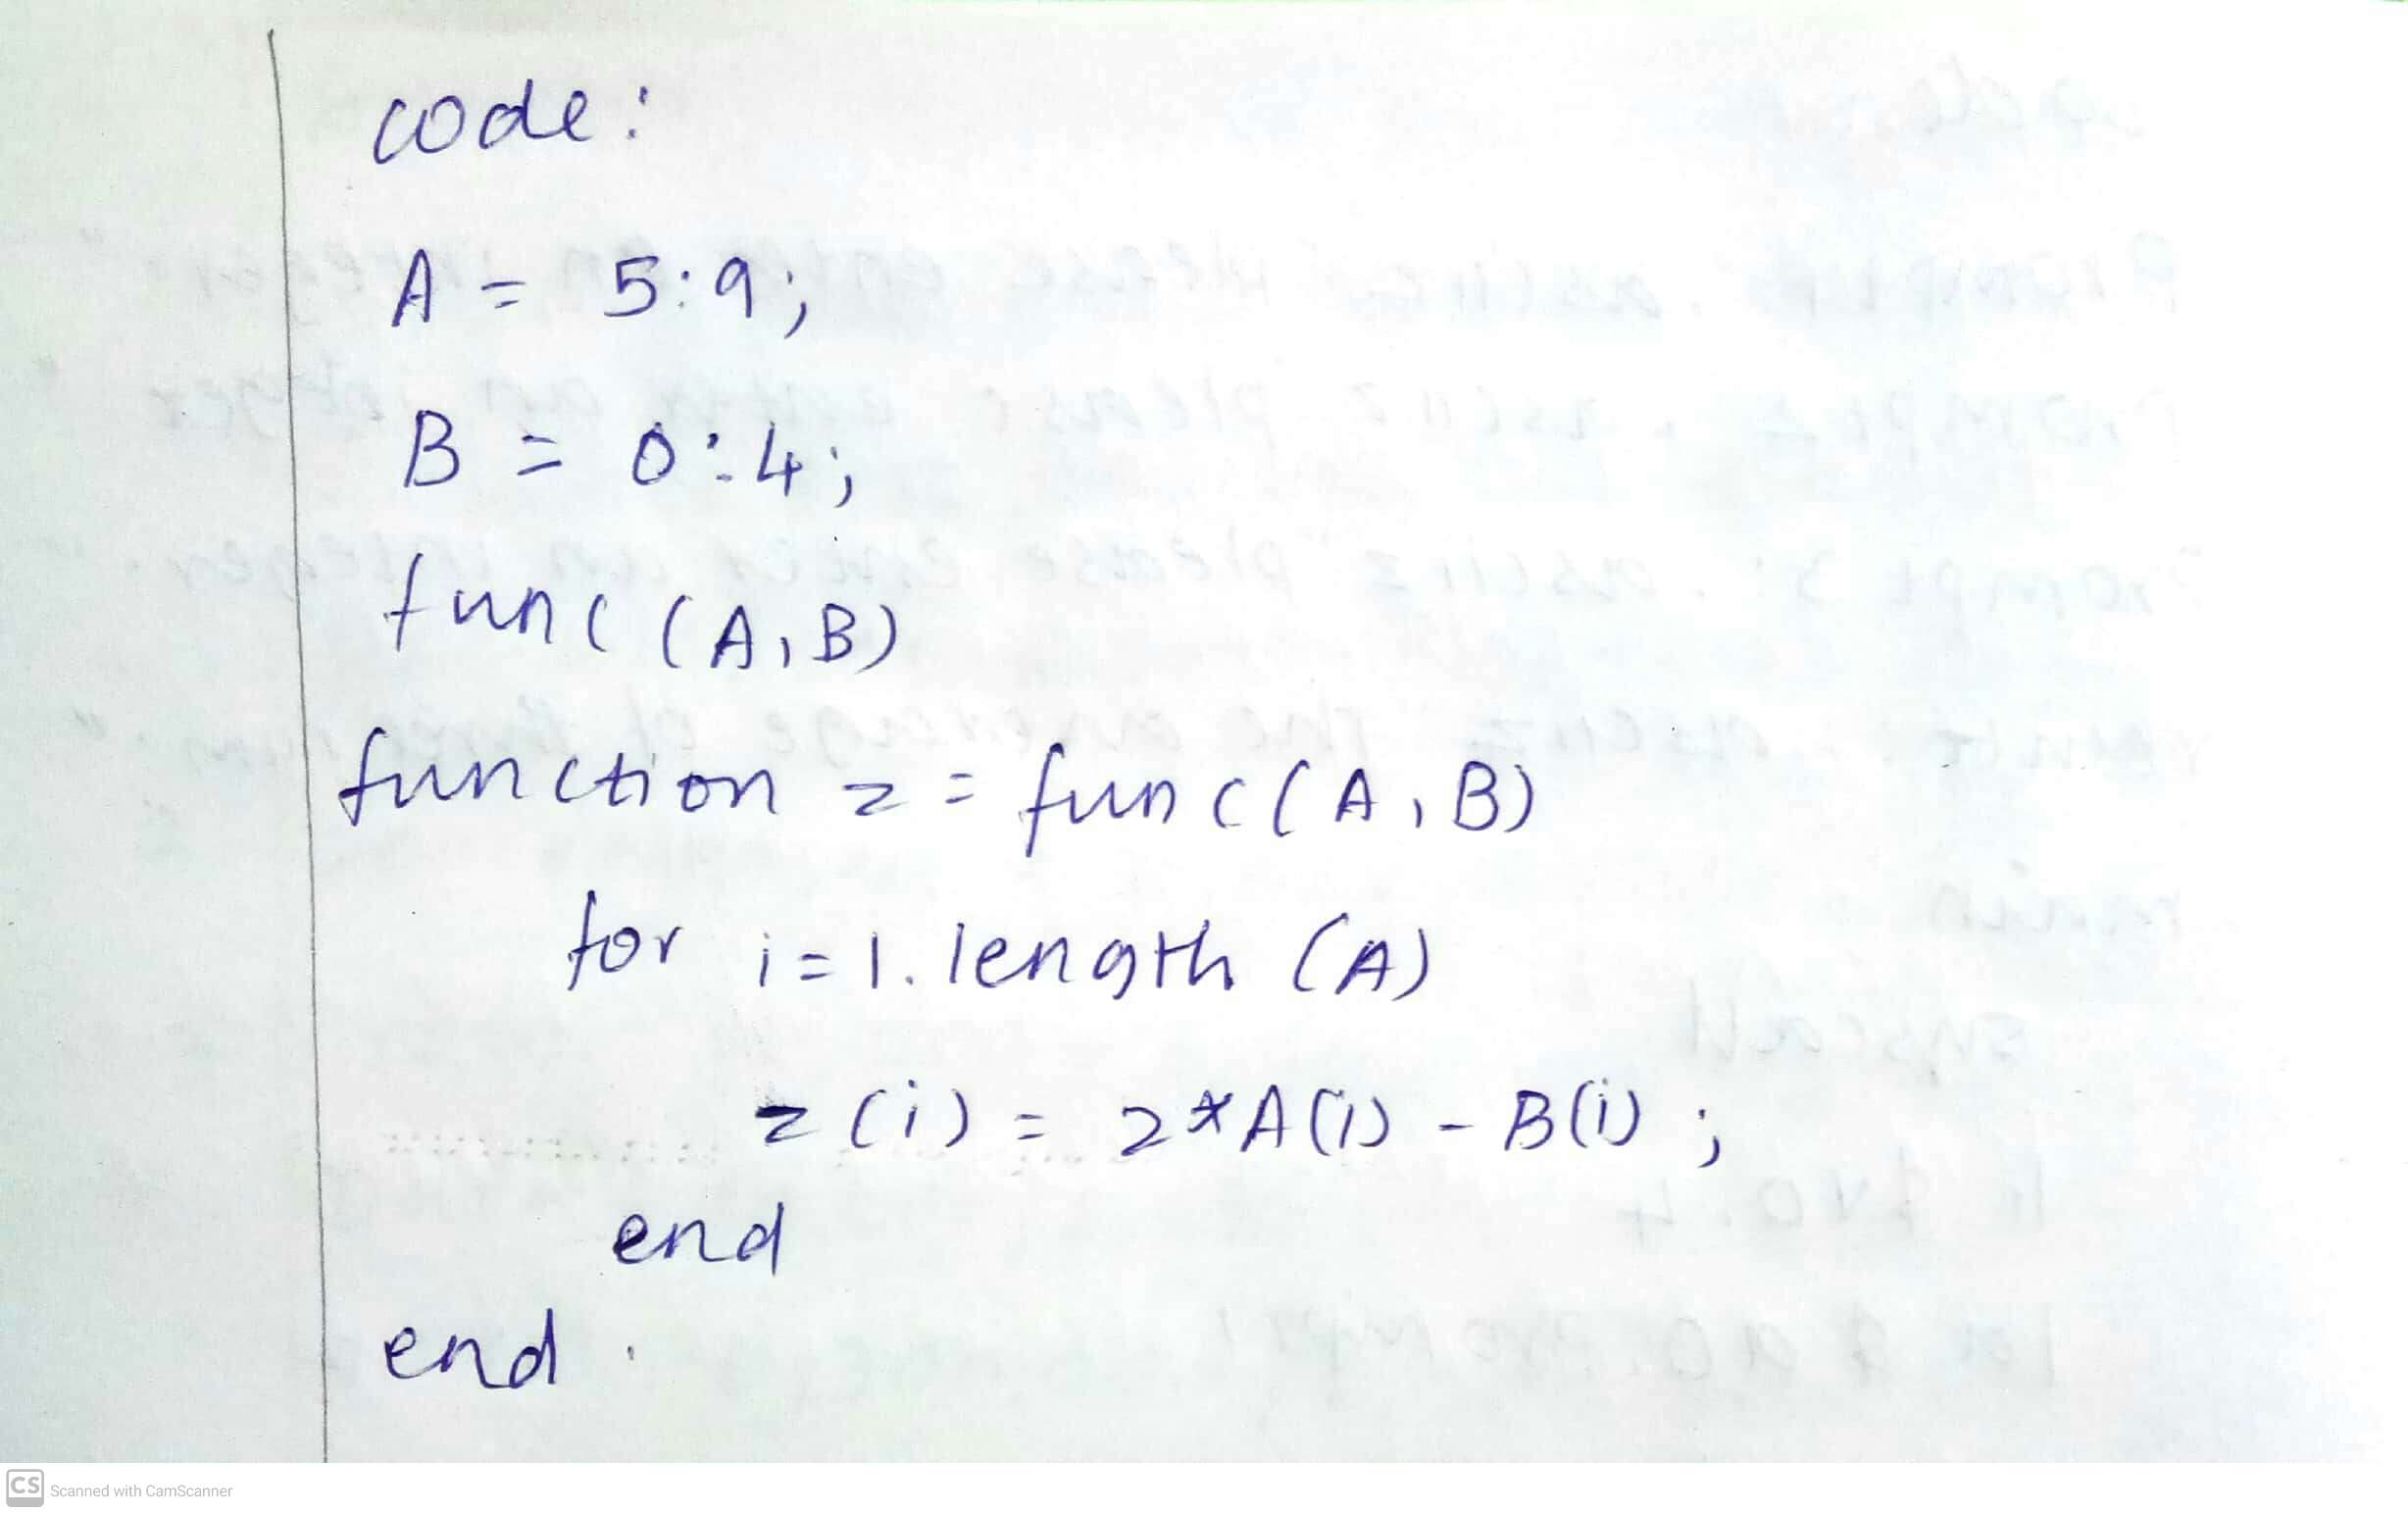 code:
A = 5:9;
B = 0:4;
func(A,B)
function z = func(A,B)
for i=1.length(A)
z(i) = 2*A(i) - B(i);
end
end.
CS Scanned with CamScanner